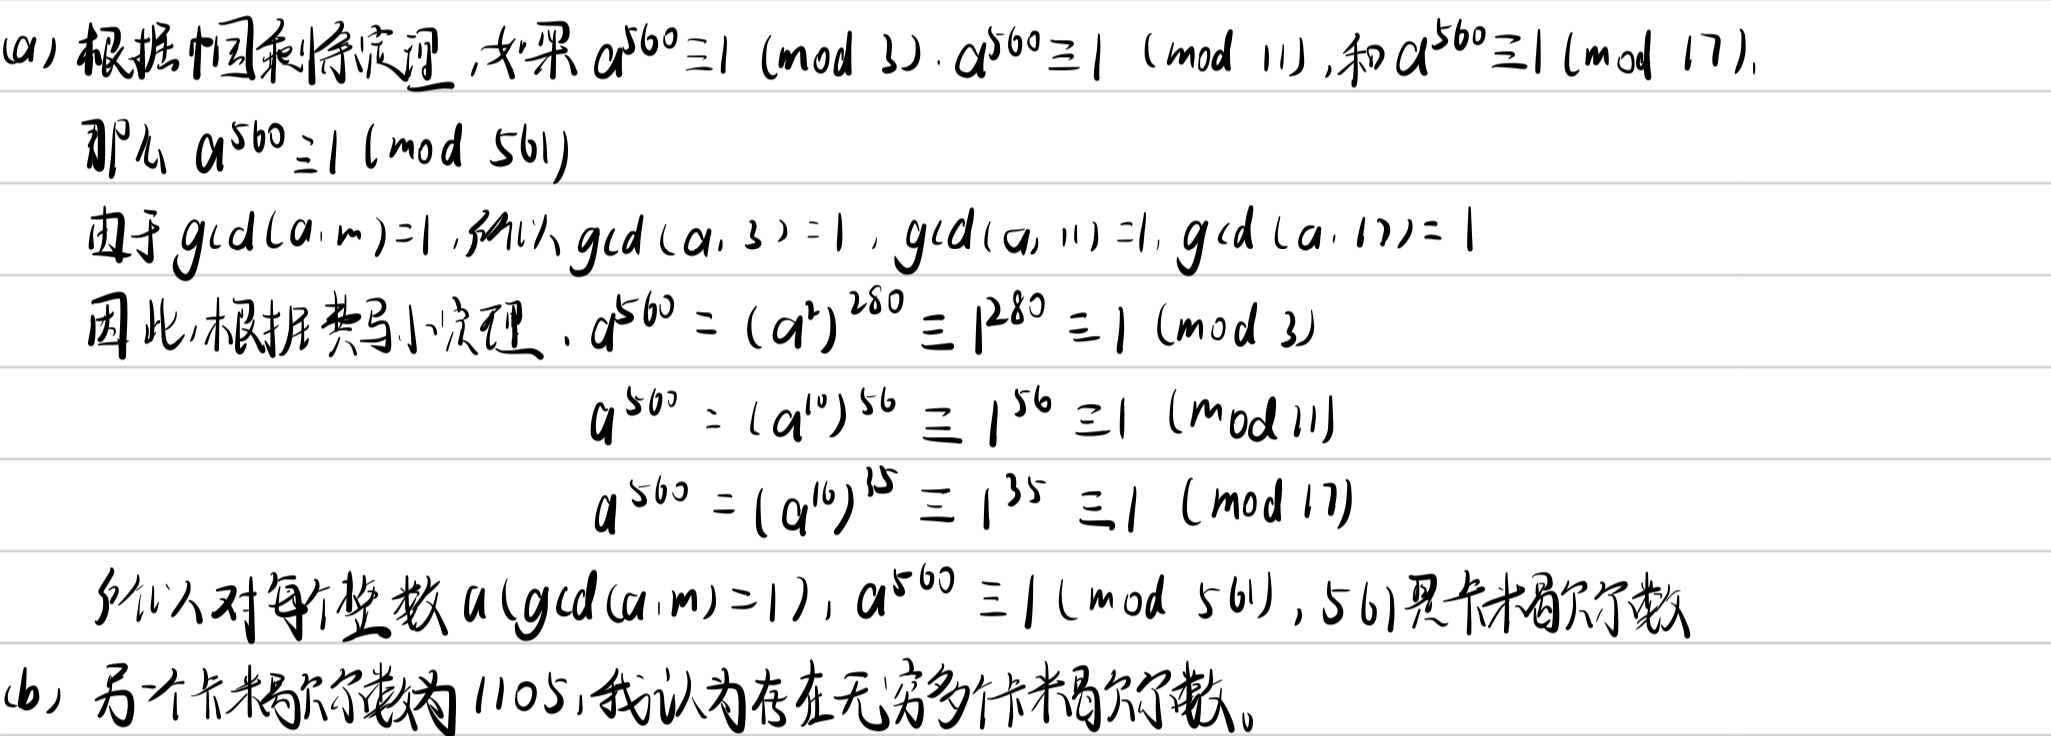 (a) 根据中国剩馀定理,如果 a^560≡1 (mod 3). a^560≡1 (mod 11),和 a^560≡1 (mod 17),
那么 a^560≡1 (mod 561)
由于 gcd(a,m)=1,所以 gcd(a,3)=1, gcd(a,11)=1, gcd(a,17)=1
因此,根据费马小定理, a^560=(a^2)^280≡1^280≡1 (mod 3)
a^560=(a^10)^56≡1^56≡1 (mod 11)
a^560=(a^16)^35≡1^35≡1 (mod 17)
所以对每个整数 a(gcd(a,m)=1), a^560≡1 (mod 561), 561是卡米歇尔数
(b) 另一个卡米歇尔数为 1105,我认为存在无穷多个卡米歇尔数。